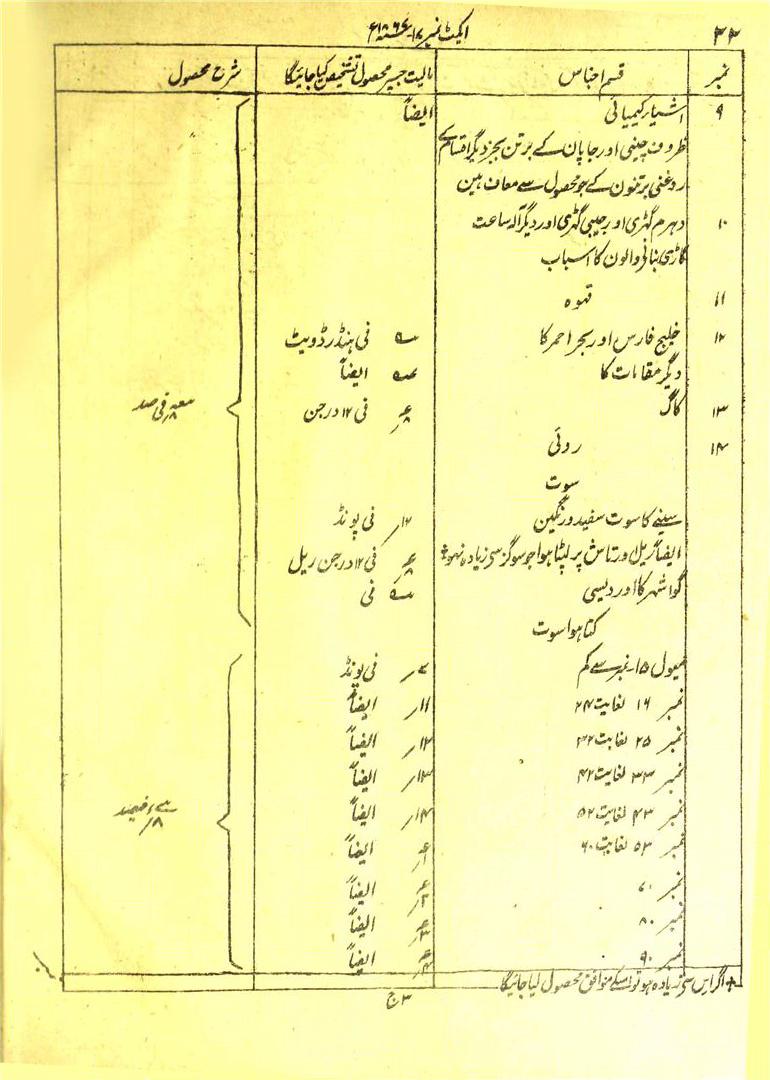 ۳۳ ایکٹ نمبر ۱۷ ۱۸۶۷ء
نمبر قسم اجناس مالیت جسپر محصول تشخیص کیا جائیگا شرح محصول
۹ اشیاء کیمیائی ایضاً
ظروف چینی اور جاپان کے برتن بجز دیگر اقسام کے
روغنی برتنون کے جو محصول سے معاف ہین
۱۰ دہرم گہڑی اور جیبی گہڑی اور دیگر آلہ ساعت
گاڑی بنانیوالون کا اسباب
۱۱ قہوہ
۱۲ خلیج فارس اور بحر احمر کا فی ہنڈرڈویٹ
دیگر مقامات کا ایضاً
۱۳ کاگ فی ۱۲ درجن فی صد
۱۴ روئی
سوت
سینے کا سوت سفید و رنگین ۱۲/ فی پونڈ
ایضاً ریل و تاش پر لپٹا ہوا جو سو گز سی زیادہ نہو + فی ۱۲ درجن ریل
گوا شہر کا اور دیسی فی
کتا ہوا سوت
میول ۱۵ نمبر سے کم فی پونڈ
نمبر ۱۶ لغایت ۲۴ ۱۱/ ایضاً
نمبر ۲۵ لغایت ۳۲ ۱۲/ ایضاً
نمبر ۳۳ لغایت ۴۲ ۱۳/ ایضاً
نمبر ۴۳ لغایت ۵۲ ۱۴/ ایضاً
نمبر ۵۳ لغایت ۶۰ ایضاً
نمبر ۷۰ ایضاً
نمبر ۸۰ ایضاً
نمبر ۹۰ ایضاً
+ اگر اس سی زیادہ ہو تو اسکے موافق محصول لیا جائیگا
۳ ج